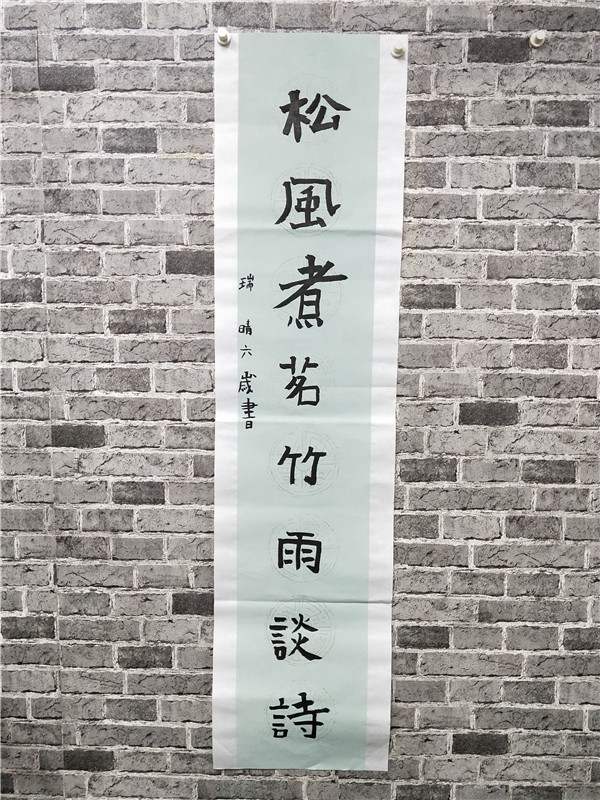 松風煮茗竹雨談詩
瑞晴六歲書